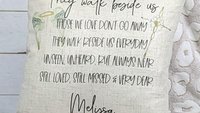 They walk beside us
THOSE WE LOVE DON'T GO AWAY
THEY WALK BESIDE US EVERYDAY
UNSEEN, UNHEARD, BUT ALWAYS NEAR
STILL LOVED, STILL MISSED & VERY DEAR
Melissa